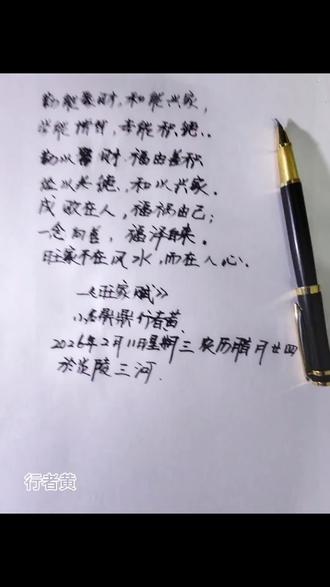 勤能聚财,和能兴家,
学能增值,孝能积德..
勤以聚财 福由善积
以养德,和以兴家.
成败在人,福祸由己;
一念向善,福泽自来.
旺家不在风水,而在人心.
—《旺家赋》
行者黄.
2026年2月11日星期三 农历腊月廿四
于炎陵三河.
行者黄